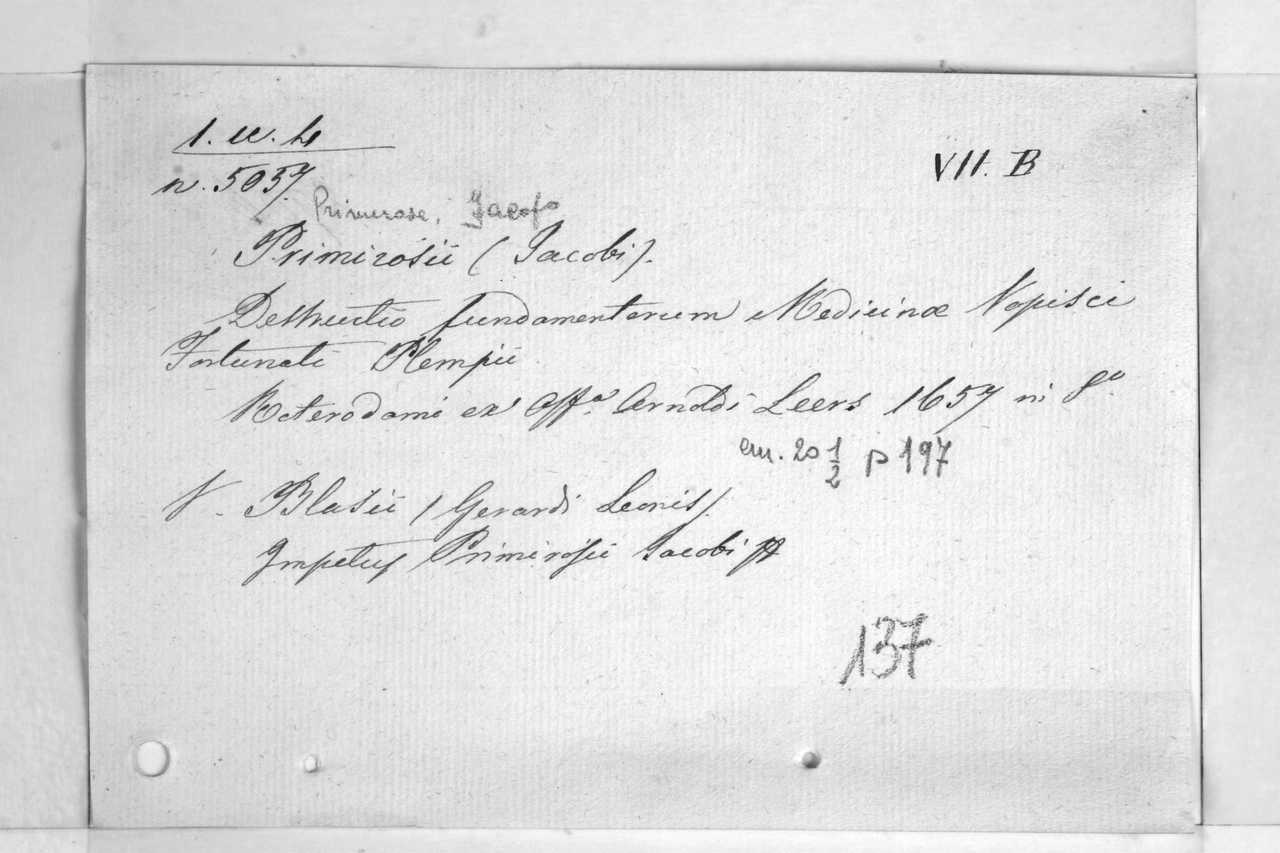 1. u. 4
VII. B
n. 5037.
Primerose, Jacopo
Primirosii (Jacobi).
Destructio fundamentorum Medicinæ Vopisci
Fortunati Plempii
Roterodami ex Offa. Arnoldi Leers 1657 in 8o
cm. 20 1/2 p 197
V. Blasii (Gerardi Leonis).
Impetus Primirosii Jacobi
137